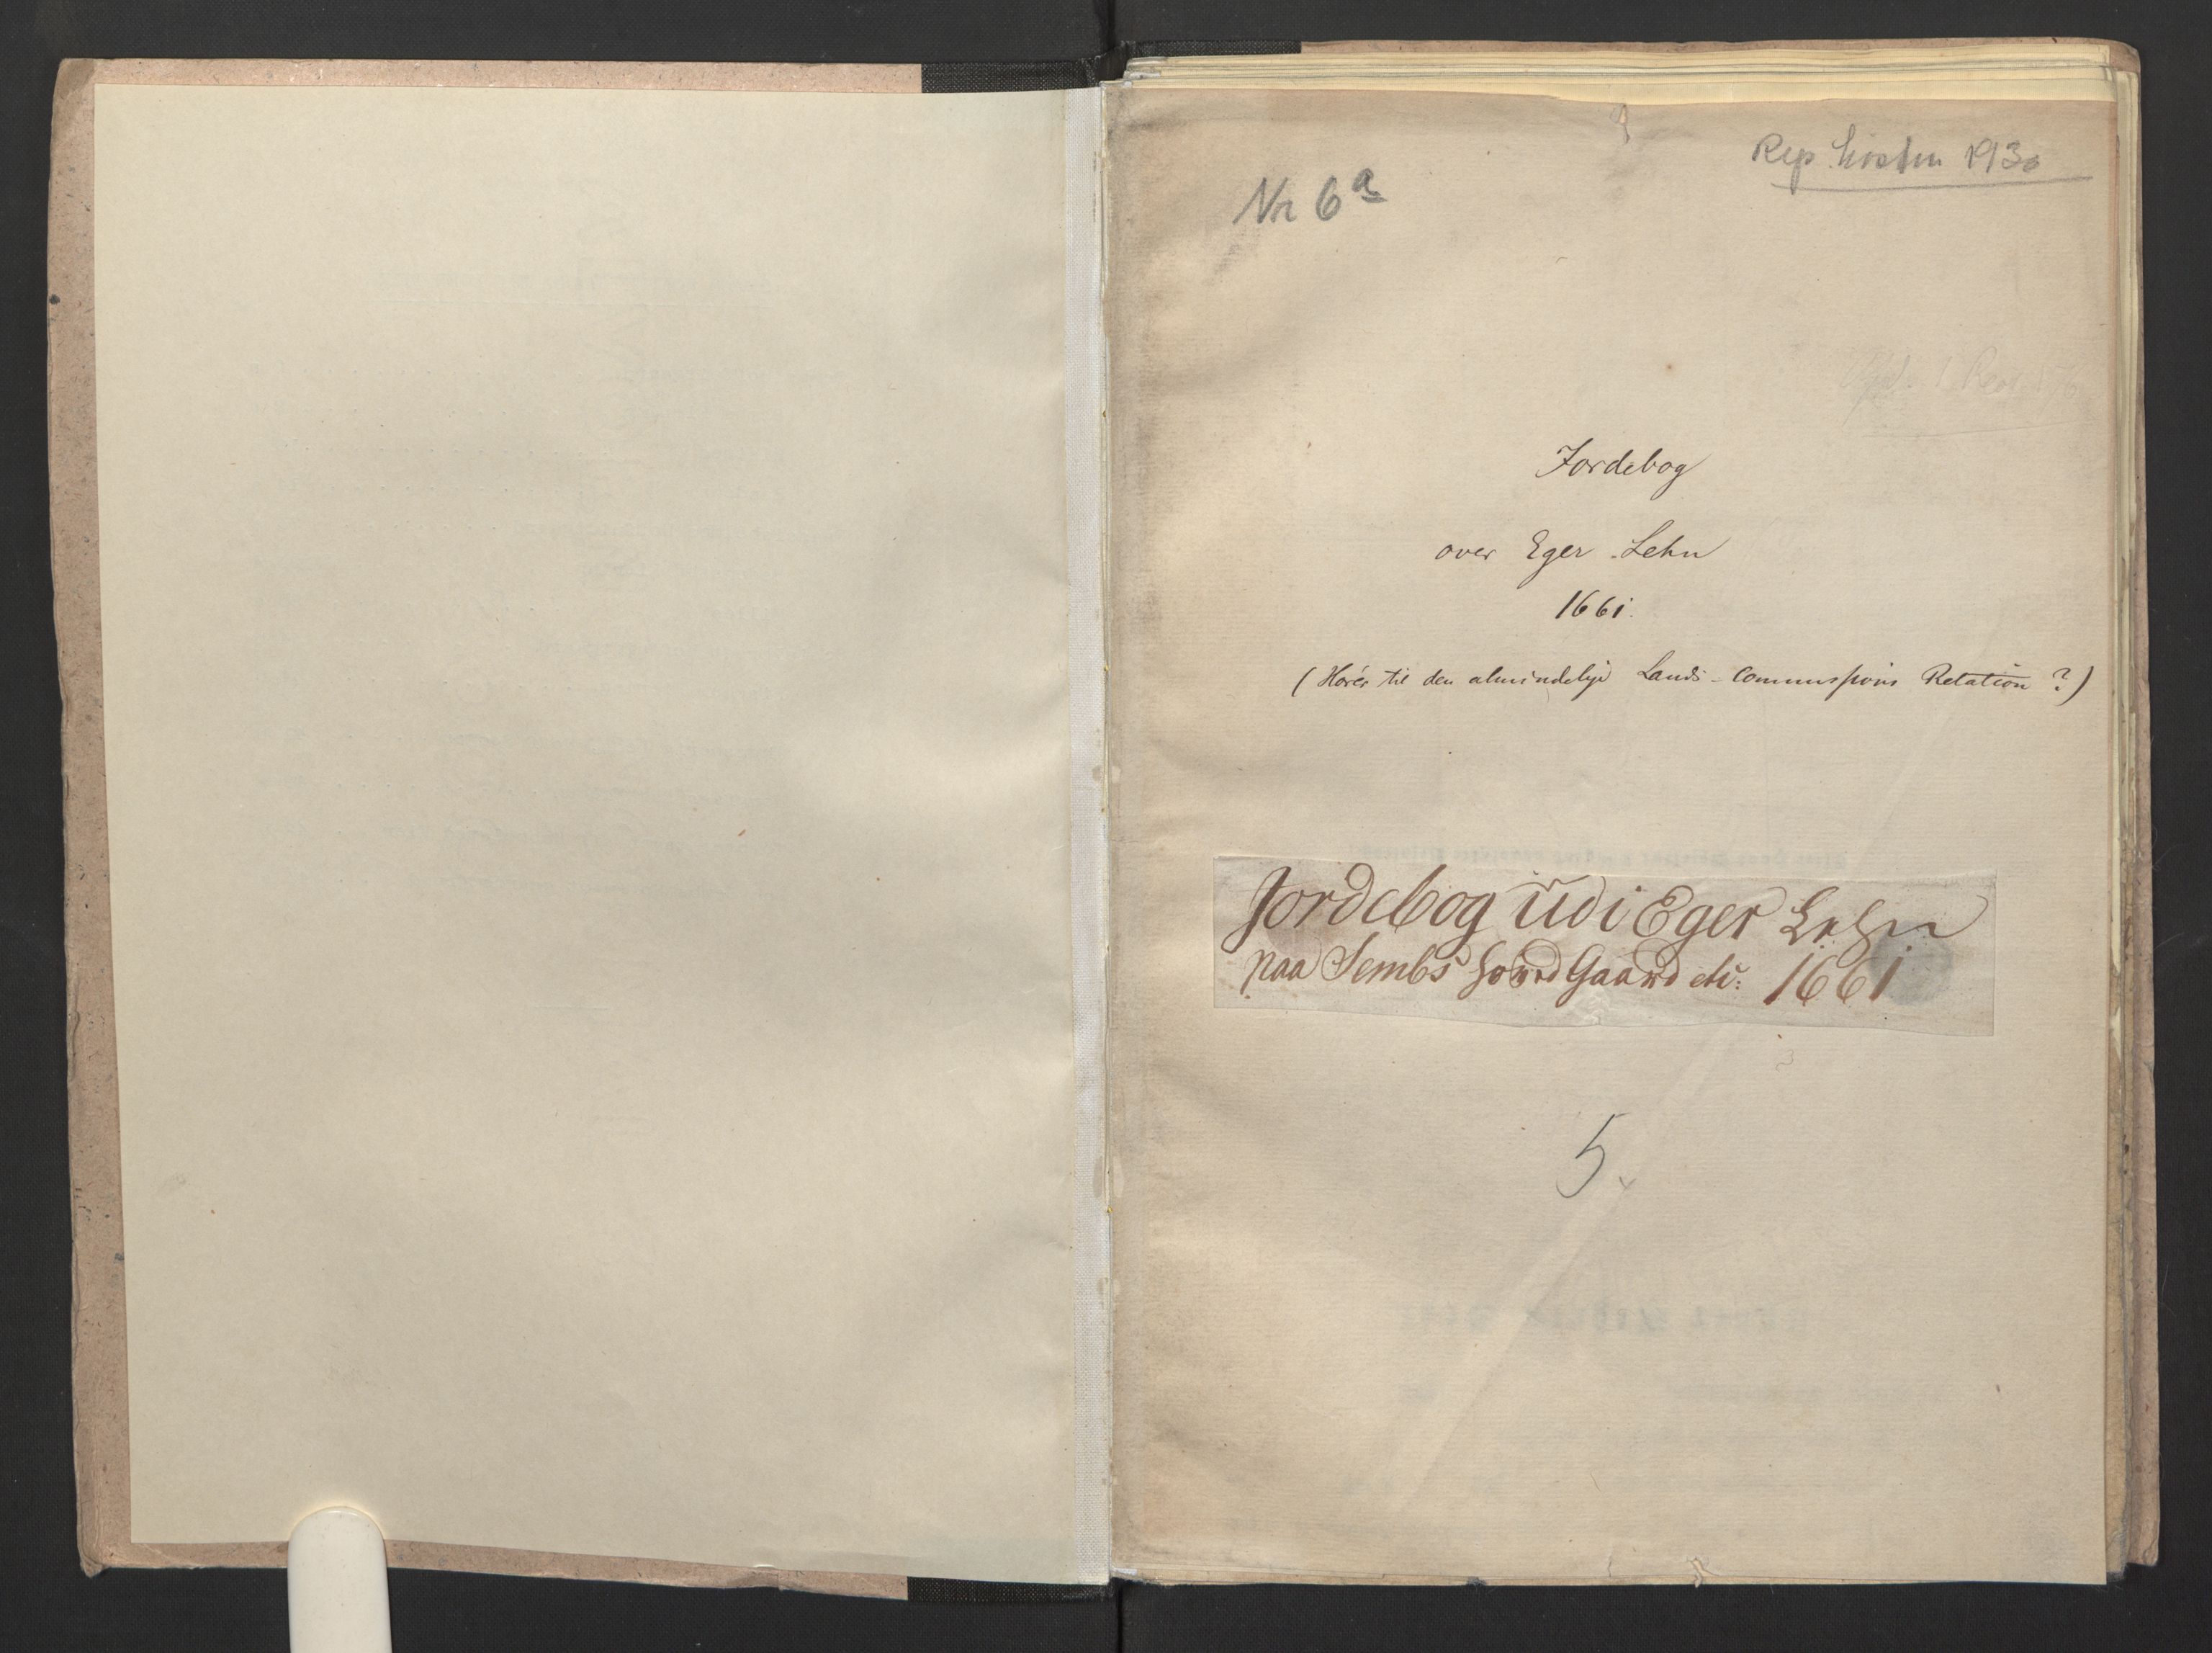 Rep. høsten 1930
Nr 6a
Jordebog
over Eger Lehn
1661.
(Hører til den almindelige Lands-Commissions Relation?)
Jordebog udi Eger Lehn
paa Sembs hovrd Gaard etc: 1661
5.